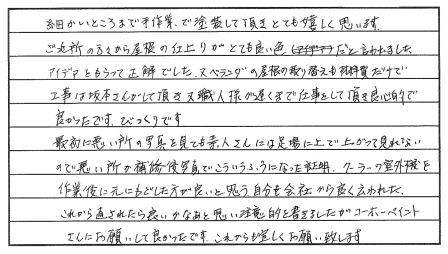 細かいところまで手作業で塗装して頂きとても嬉しく思います。
ご近所の方々から屋根の仕上りがとても良い色だと言われました。
アイデアともらって正解でした。又ベランダの屋根の取り替えも材料費だけで
工事は坂本さんがして頂き又職人様が遅くまで仕事をして頂き良心的で
良かったです。びっくりです
最初に悪い所の写真を見ても素人さんには足場に上って上がって見れない
ので悪い所が補修後写真でこういうふうになった証明、クーラーの室外機を
作業後に元にもどした方が良いと思う自分も会社から良く言われた。
これから直されたら良いかなあと思い注意的を書きましたがコーホーペイント
さんにお願いして良かったです。これからも宜しくお願い致します